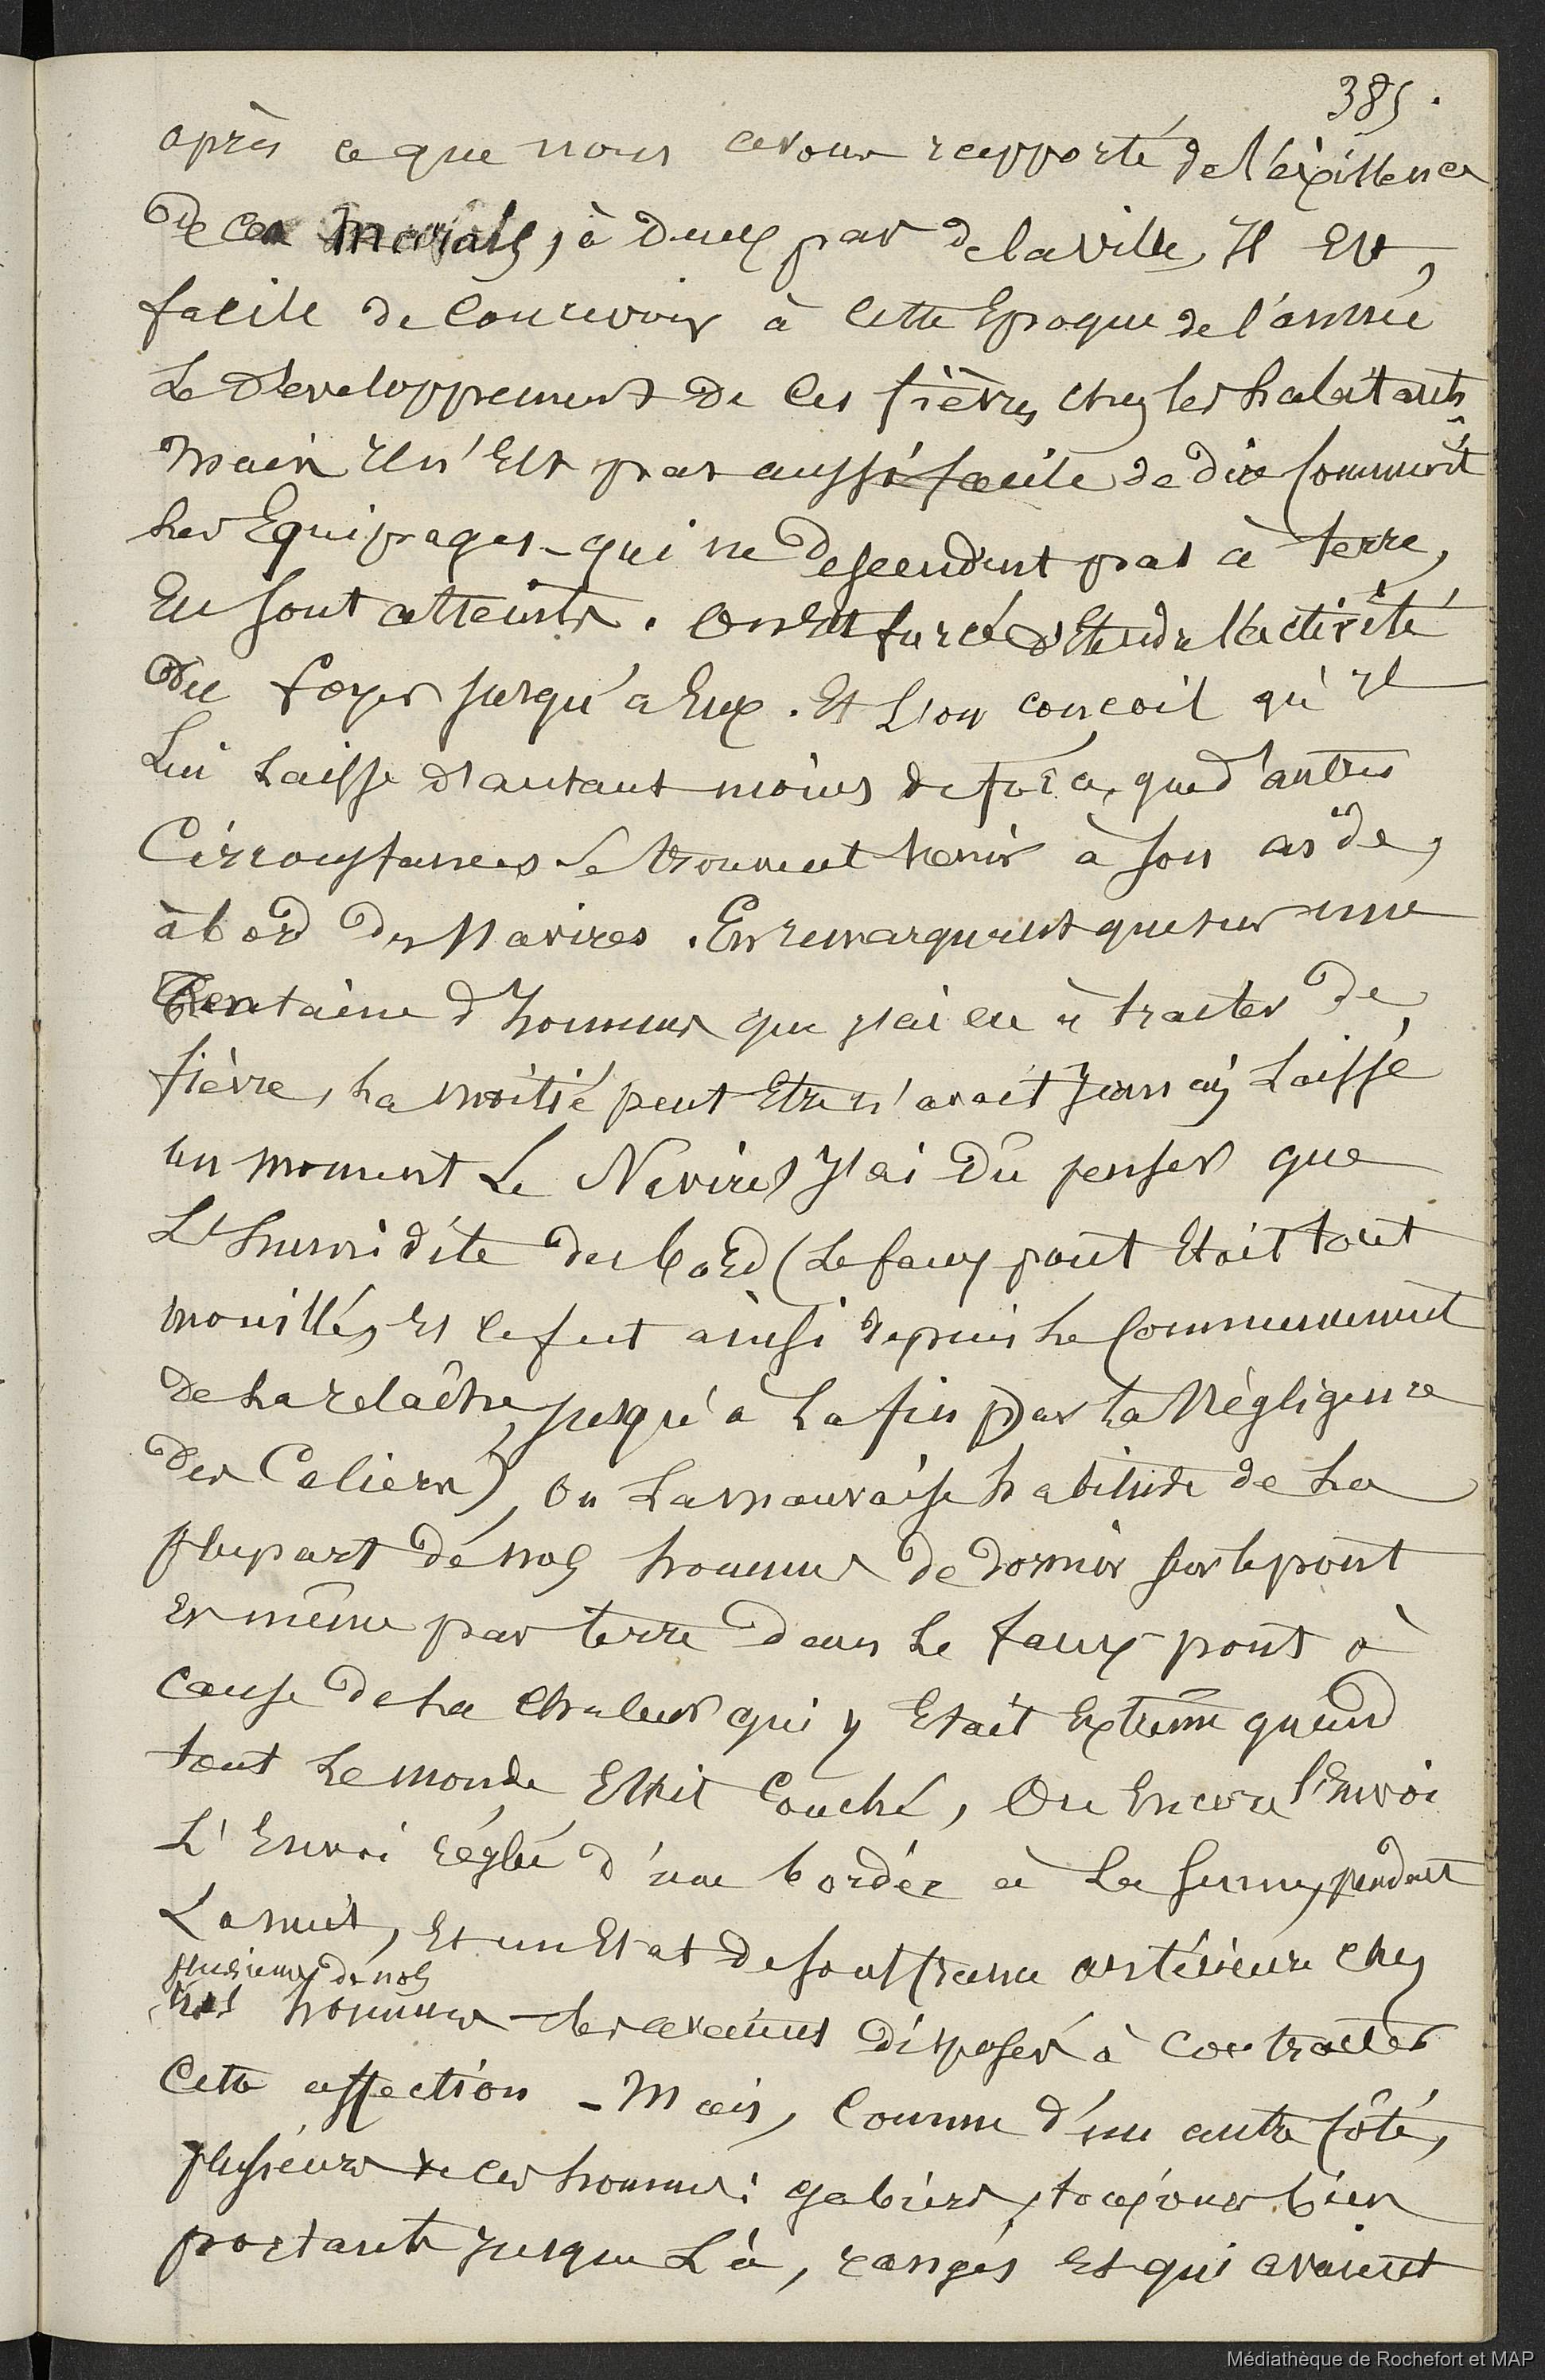 385.
après ce que nous avons rapporté de l'éxistence
De ces Marais, à deux pas de la ville, Il Est,
facile de Concevoir à Cette Epoque de l'année
Le Développement de Ces fièvres, chez les habitants
Mais il n'Est pas aussi facile de dire Comment
Les Equipages qui ne Descendent pas à terre,
En sont atteints. On Est forcé d'Etendre l'activité
Du foyer jusqu'a Eux. Et L'on conçoit qu'il
Lui Laisse d'autant moins de force, que d'autres
Circonstances se trouvent venir à son aide,
à bord Des Navires. En remarquant que sur une
trentaine d'hommes que j'ai eu à traiter De
fièvre, La moitié peut Etre n'avait jamais Laissé
un moment Le Navire, J'ai Dû penser que
L'humidité du bord (Le faux pont Etait tout
mouillé, Et le fut ainsi depuis Le Commencement
de La relâche, jusqu'à La fin par La Négligence
des Caliers), ou La mauvaise habitude de La
plupart de nos hommes de dormir sur le pont
Et même par terre dans Le faux pont à
Cause de La Chaleur qui y Etait Extrême quand
tout Le monde Etait Couché, Ou Encore l'Envoi
L'Envoi réglé d'une bordée à La pendant
La nuit, Et un Etat de souffrance antérieure chez
plusieurs de nos
nos hommes les avaient Disposés à Contracter
Cette affection - Mais, Comme d'un autre Côté,
plusieurs de ces hommes: gabiers, toujours bien
portants jusque Là, rangés Et qui avaient
Médiathèque de Rochefort et MAP